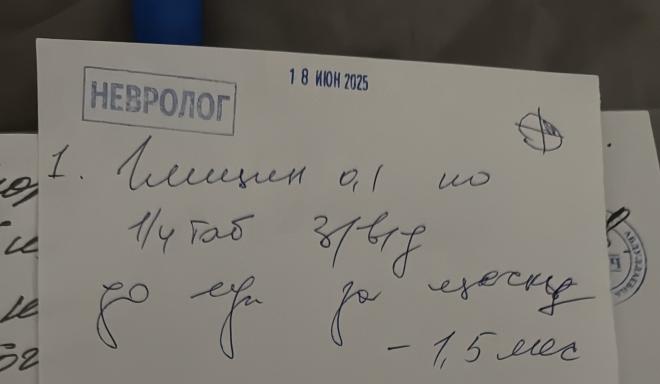 18 ИЮН 2025
НЕВРОЛОГ
1. Глицин 0,1 по
1/4 таб 3/в/д
до еды за щеку
- 1,5 мес